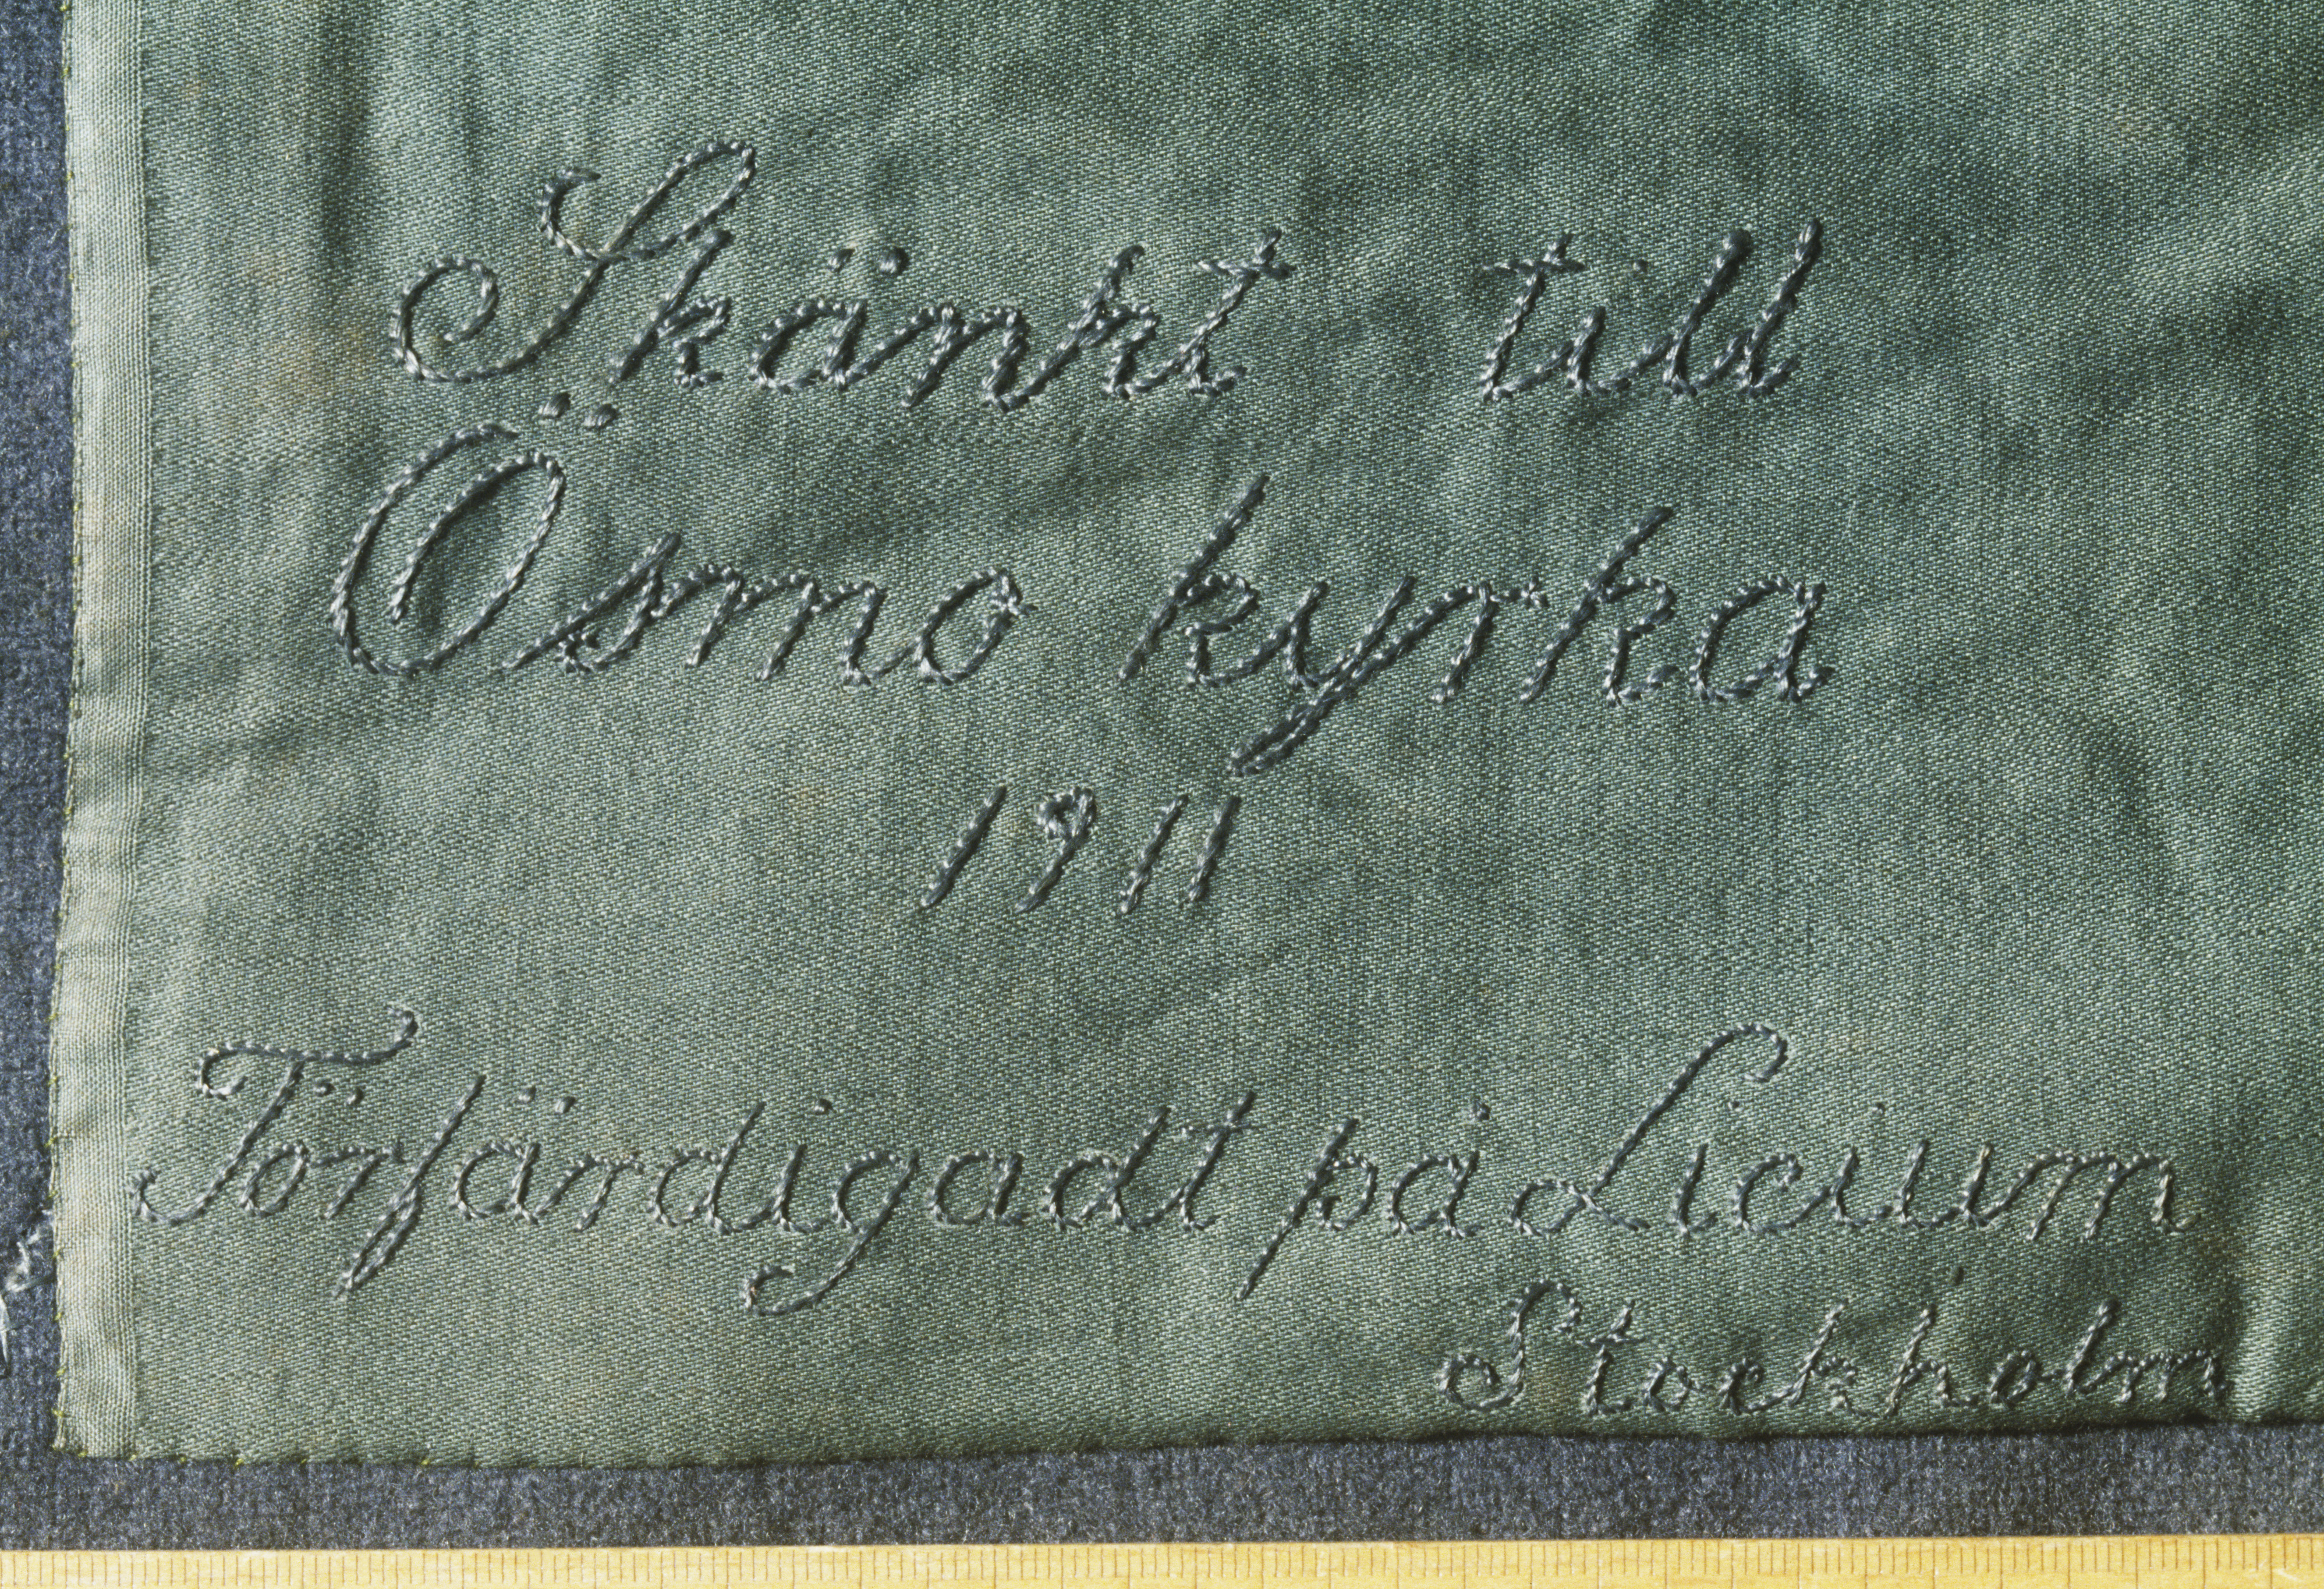 Skänkt till
Ösmo kyrka
1911
Förfärdigadt på Licium
Stockholm